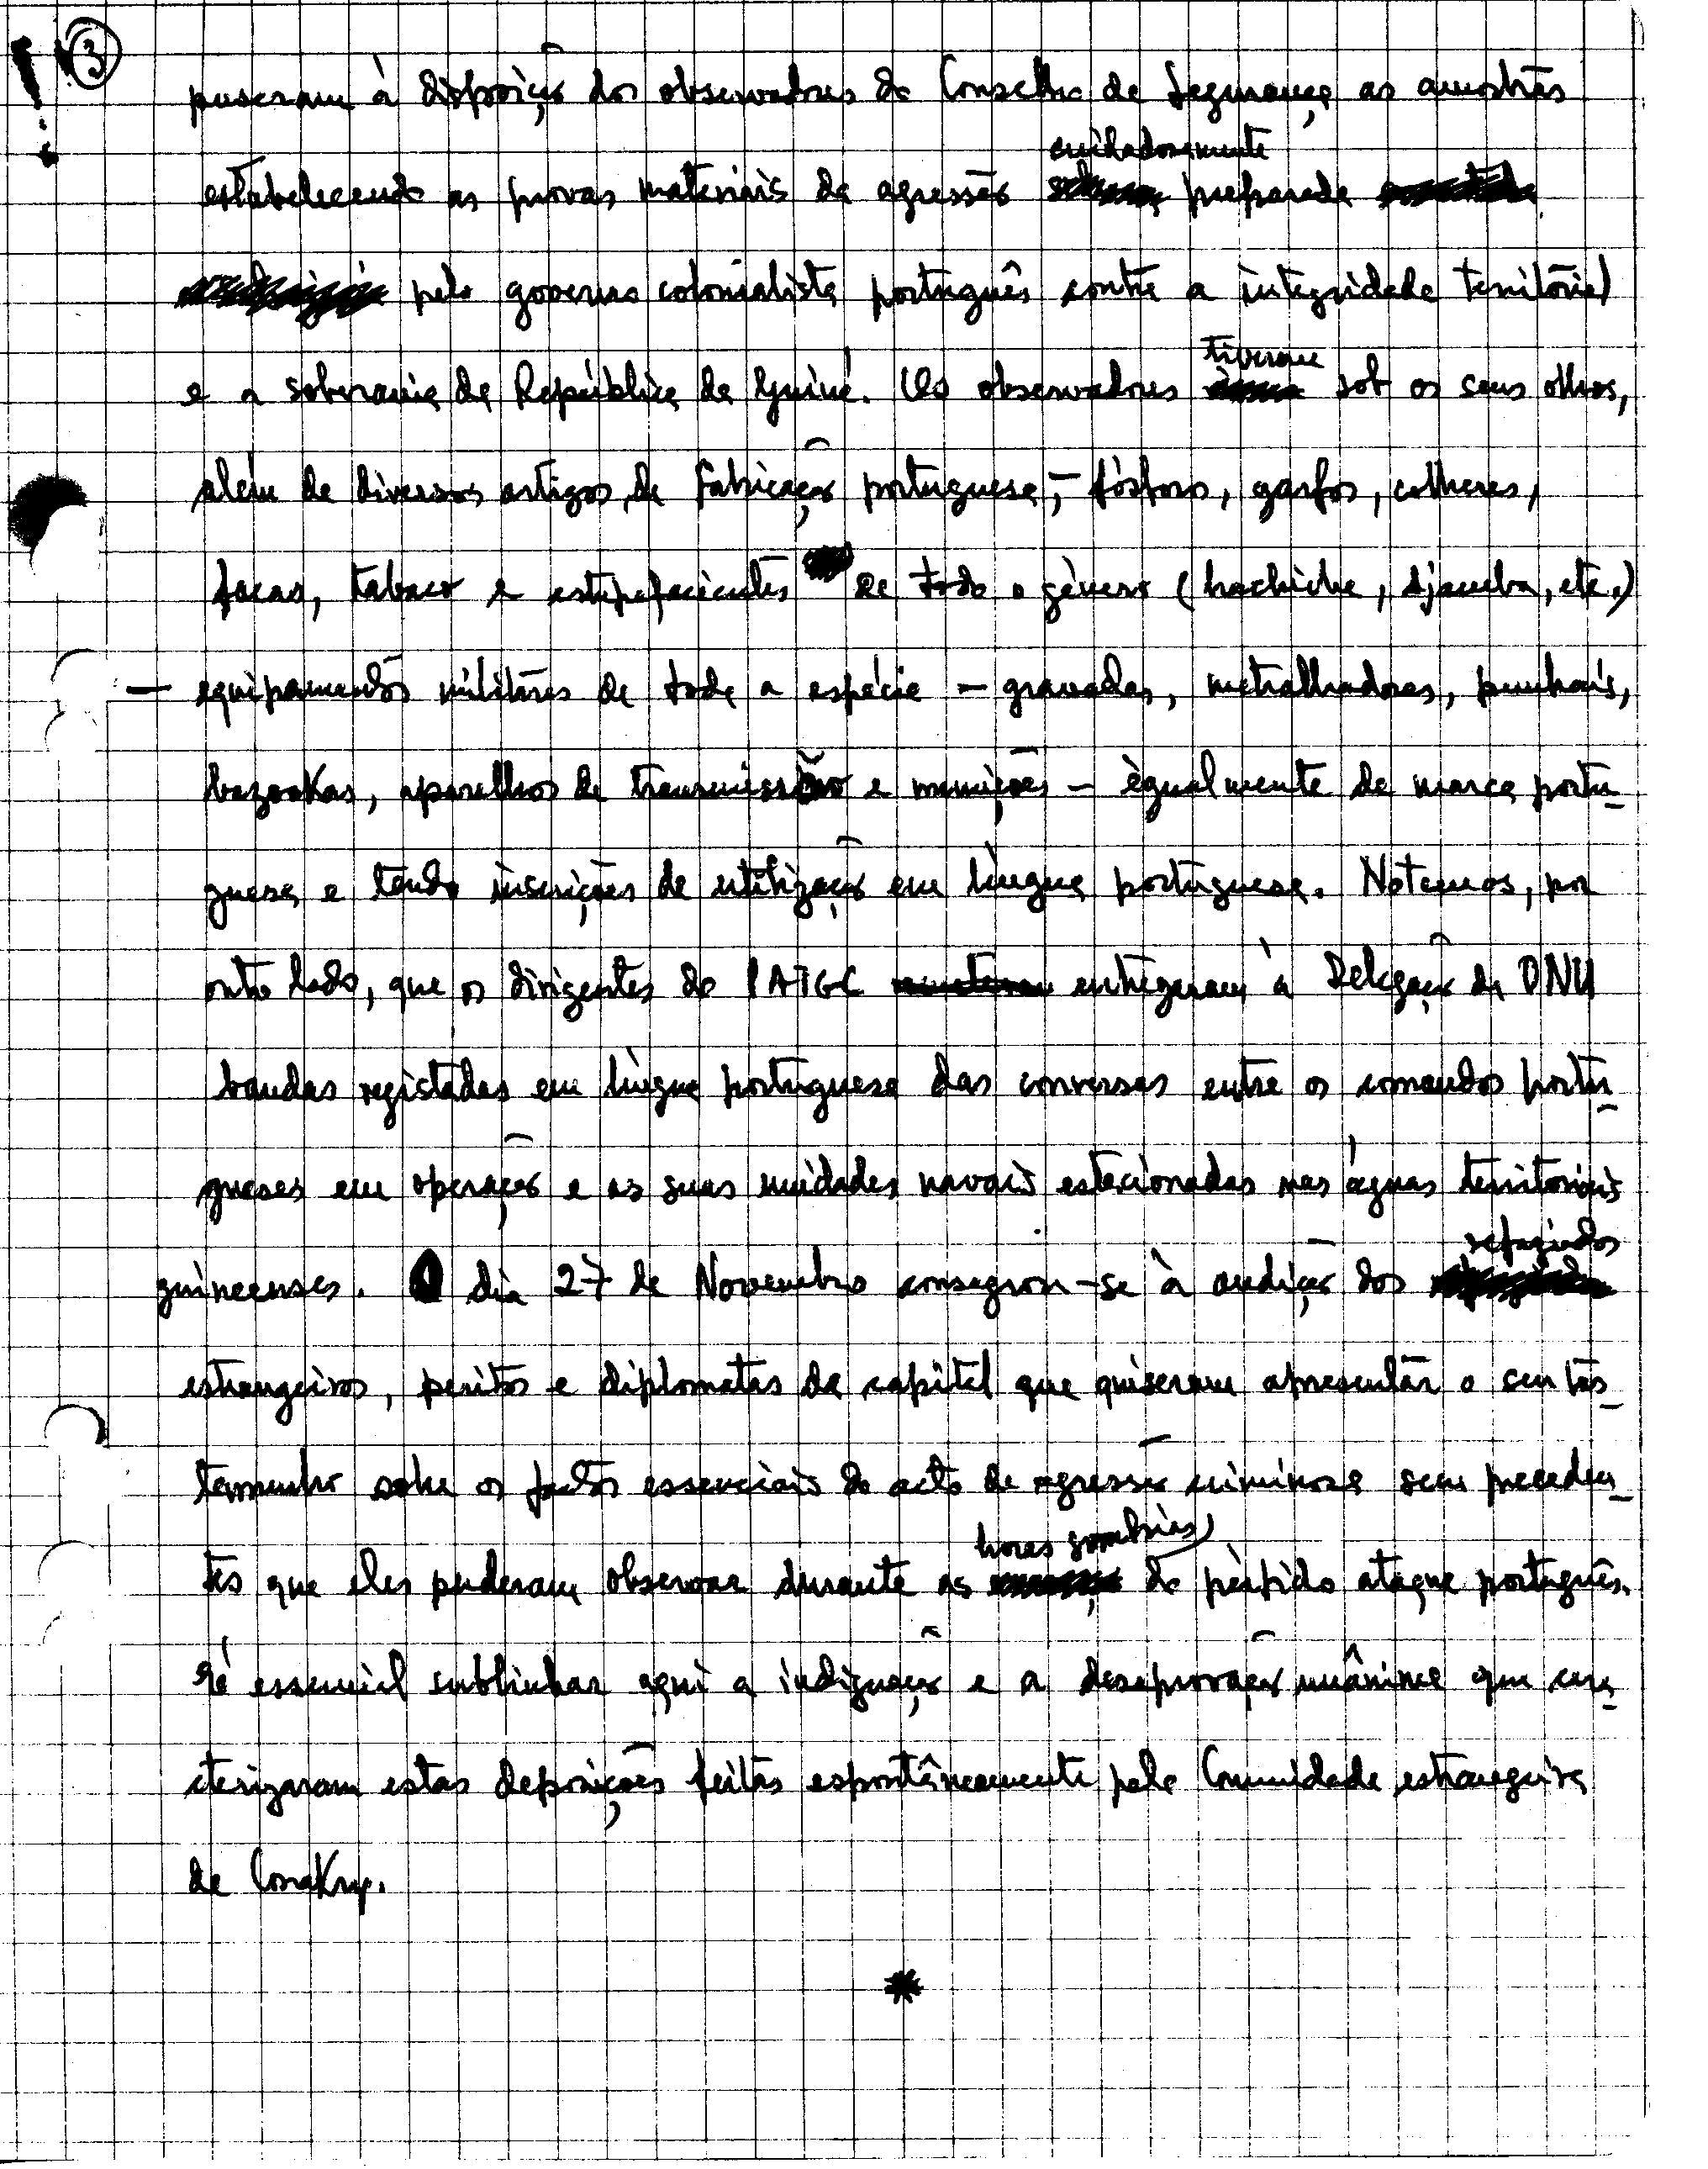 3
puseram à disposição dos observadores do Conselho de Segurança as amostras
cuidadosamente
estabelecendo as provas materiais da agressão preparada
pelo governo colonialista português contra a integridade territorial
tiveram
e a soberania da República da Guiné. Os observadores sob os seus olhos,
além de diversos artigos de fabricação portuguesa, – fósforos, garfos, colheres,
facas, tabaco e estupefacientes de todo o género (hachiche, djamba, etc.)
— equipamentos militares de toda a espécie – granadas, metralhadoras, punhais,
bazookas, aparelhos de transmissão e munições – ègualmente de marca portu-
guesa e tendo inscrições de utilização em língua portuguesa. Notemos, por
outro lado, que os dirigentes do PAIGC entregaram à Delegação da ONU
bandas registadas em língua portuguesa das conversas entre os comandos portu-
gueses em operação e as suas unidades navais estacionadas nas águas territoriais
guineenses. O dia 27 de Novembro consagrou-se à audição dos
estrangeiros, peritos e diplomatas da capital que quiseram apresentar o seu tes-
temunho sobre os factos essenciais do acto de agressão criminosa sem preceden-
horas sombrias
tes que eles puderam observar durante as do pèrfido ataque português.
é essencial sublinhar aqui a indignação e a desaprovação unânime que cara-
cterizaram estas deposições feitas espontâneamente pela Comunidade estrangeira
de Conakry.